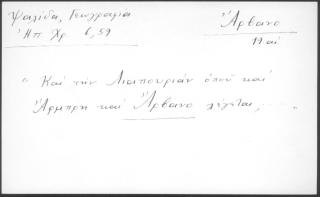 Ψαλίδα, Γεωγραφία
Ἠπ Χρ 6, 59
Ἄρβανο
19 αἰ
" Καὶ τὴν Λιαπουριάν ὁποῦ καὶ
Ἄρμπρη καὶ Ἄρβανο λέγεται, ...